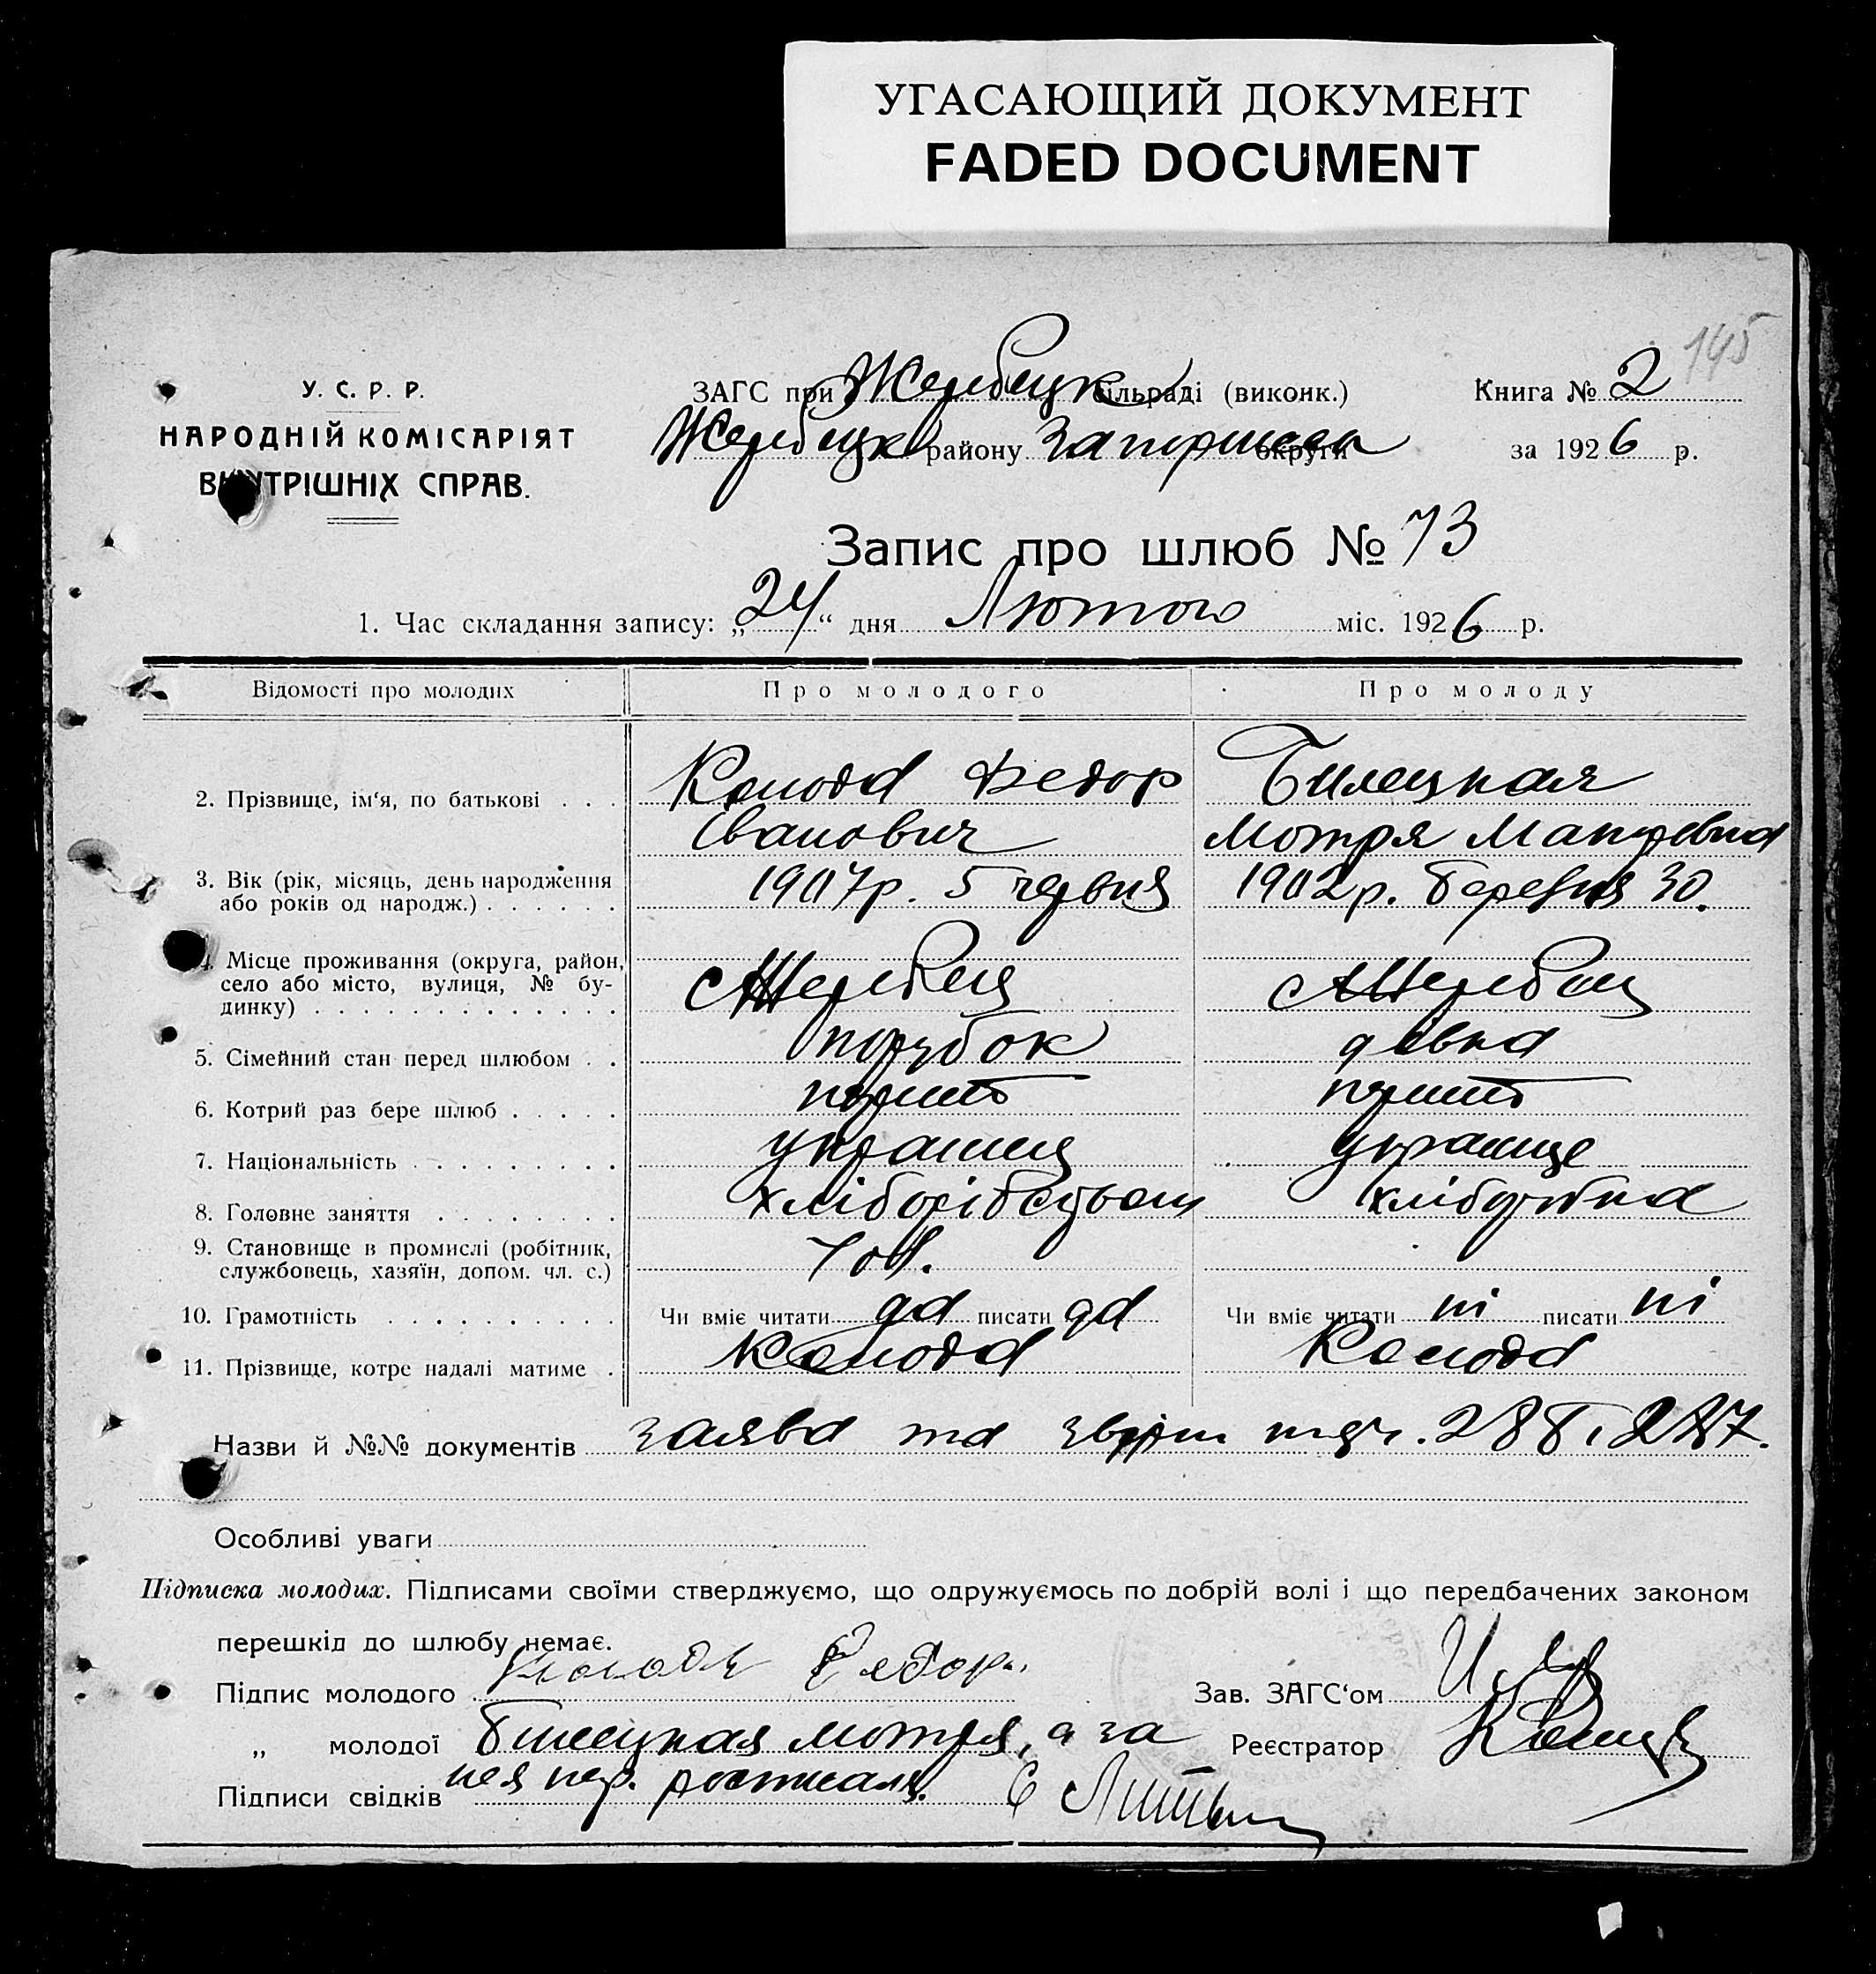 УГАСАЮЩИЙ ДОКУМЕНТ
FADED DOCUMENT
145
У. С. Р. Р.
НАРОДНІЙ КОМІСАРІЯТ
ВНУТРІШНІХ СПРАВ.
ЗАГС при Жеребецк сільраді (виконк.)
Книга № 2
Жеребецк району Запоришськ округи
за 1926 р.
Запис про шлюб № 73
1. Час складання запису: „24“ дня Лютого міс. 1926 р.
Відомості про молодих
Про молодого
Про молоду
2. Прізвище, ім‘я, по батькові . . .
Колода Федор
Іванович
Билецкая
Мотря
3. Вік (рік, місяць, день народження
або років од народж.) . . . . . .
1907р. 5 червня
1902р. березня 30.
4. Місце проживання (округа, район,
село або місто, вулиця, № бу-
динку) . . . . . . . . . . . . .
с Жеребец
с Жеребец
5. Сімейний стан перед шлюбом . .
парубок
дівка
6. Котрий раз бере шлюб . . . . .
перший
перший
7. Національність . . . . . . . . .
українец
українце
8. Головне заняття . . . . . . . .
9. Становище в промислі (робітник,
службовець, хазяїн, допом. чл. с.)
10. Грамотність . . . . . . . . . .
Чи вміє читати да писати да
Чи вміє читати ні писати ні
11. Прізвище, котре надалі матиме .
Колода
Колода
Назви й №№ документів заява та 288, 287.
Особливі уваги
Підписка молодих. Підписами своїми стверджуємо, що одружуємось по добрій волі і що передбачених законом
перешкід до шлюбу немає.
Підпис молодого Колода Федор.
Зав. ЗАГС‘ом
„ молодої Билецкая Мотря, а за
Реєстратор
нея роспысался.
Підписи свідків